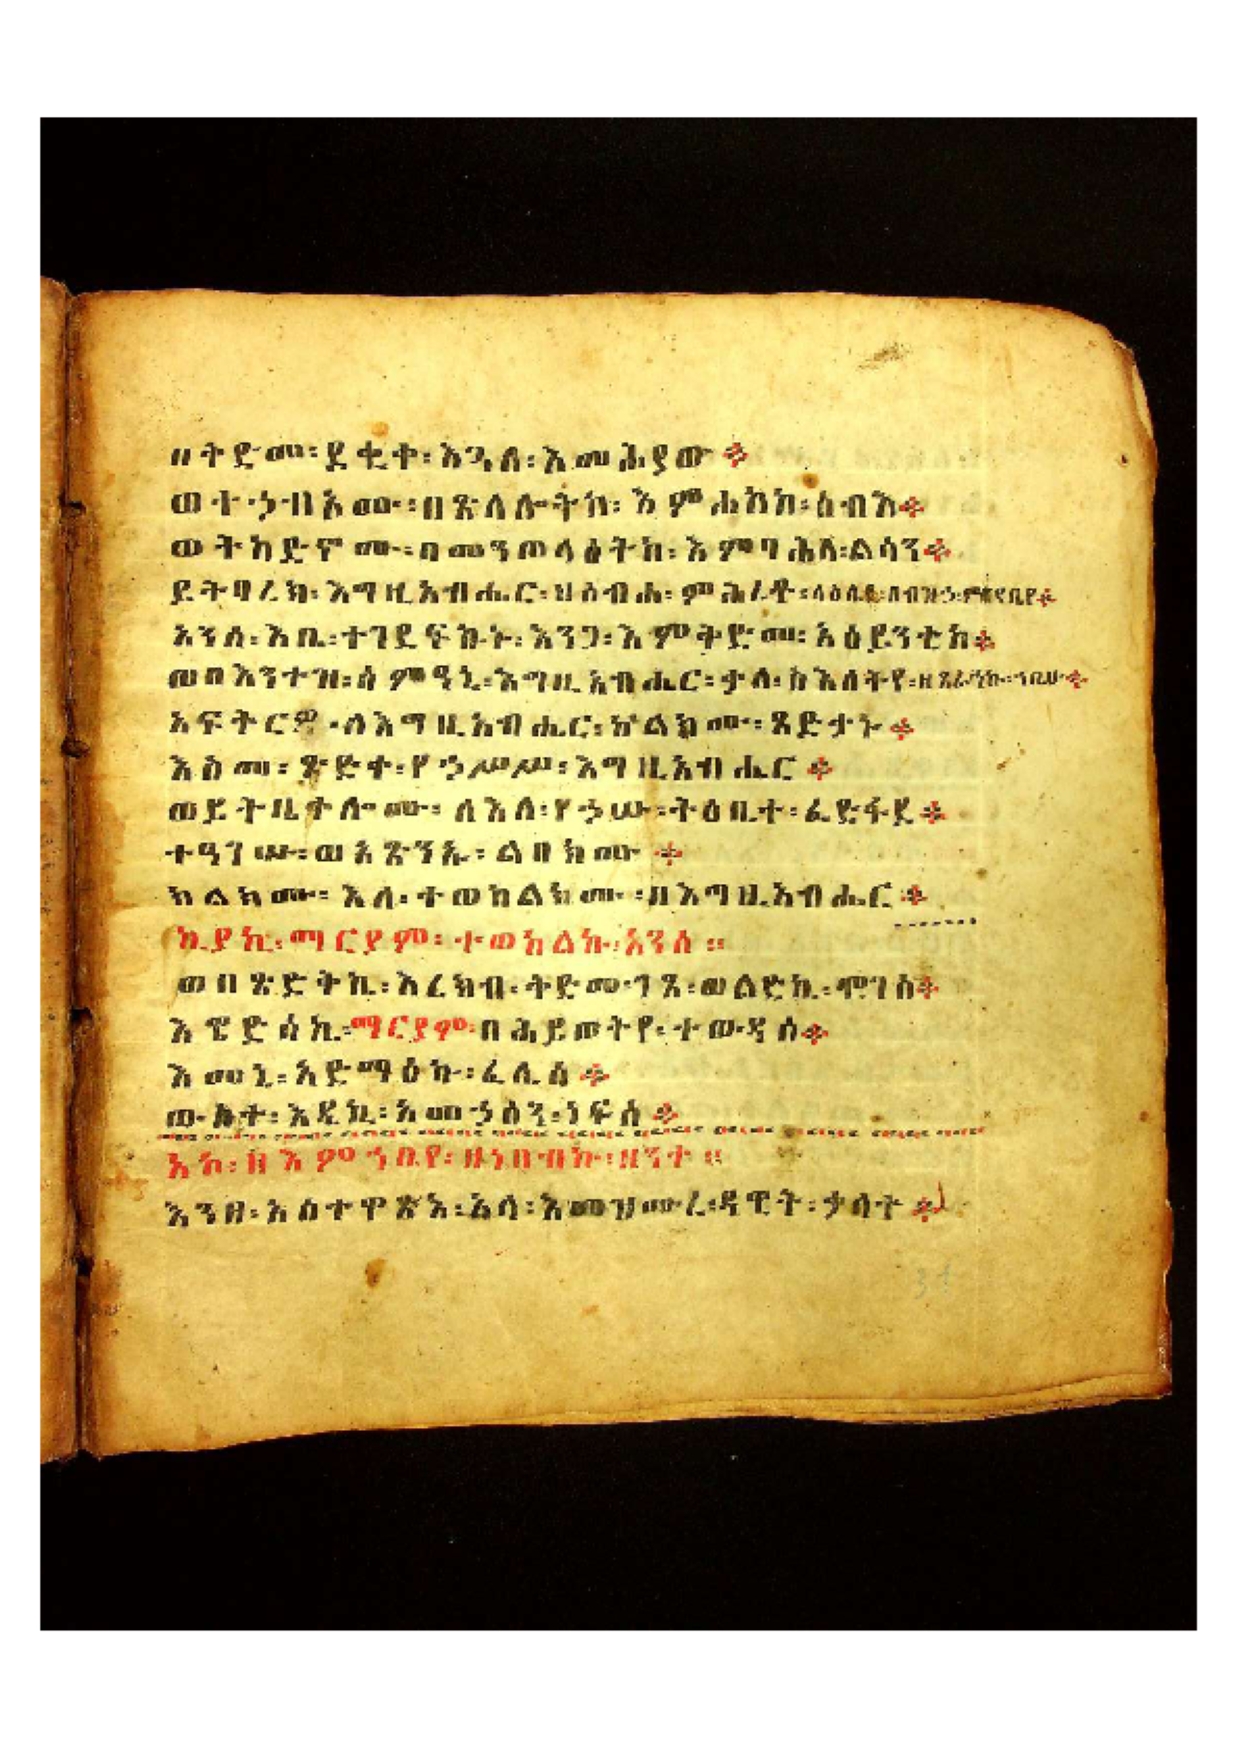 በቅድመ፡ ደቂቀ፡ እጓለ፡ እመሕያው ።
ወተኃብኦሙ፡ በጽላሎትከ፡ እምሐከከ፡ ሰብእ።
ወትከድኖሙ፡ በመንጦላዕትከ፡ እምባሕለ፡ ልሳን።
ይትባረክ፡ እግዚአብሔር፡ ዘሰብሐ፡ ምሕረቶ፡
አንሰ፡ እቤ፡ ተገደፍኩኑ፡ እንጋ፡ እምቅድመ፡ አዕይንቲከ።
ወበእንተዝ፡ ሰምዓኒ፡ እግዚአብሔር፡ ቃለ፡ ስእለትየ፡
አፍቅርዎ፡ ለእግዚአብሔር፡ ኵልክሙ፡ ጻድቃኑ ።
እስመ፡ ጽድቀ፡ የኃሥሥ፡ እግዚአብሔር ።
ወይትቤቀሎሙ፡ ለእለ፡ የኃሡ፡ ትዕቢተ፡ ፈድፋደ ።
ተዓገሡ፡ ወአጽንኡ፡ ልበክሙ ።
ኵልክሙ፡ እለ፡ ተወከልክሙ፡ በእግዚአብሔር ።
ኪያኪ፡ ማርያም፡ ተወከልኩ፡ አንሰ ።
ወበጽድቅኪ፡ እረክብ፡ ቅድመ፡ ገጸ፡ ወልድኪ፡ ሞገሰ።
እዌድሰኪ፡ ማርያም፡ በሕይወትየ፡ ተውዳሰ።
እመኒ፡ አድማዕኩ፡ ፈሊሰ ።
ውስተ፡ እዴኪ፡ አመኃፅን፡ ነፍሰ ።
አኮ፡ ዘእምኀቤየ፡ ዘነበብኩ፡ ዘንተ ።
እንዘ፡ አስተዋጽእ፡ አላ፡ እመዝሙረ፡ ዳዊት፡ ቃላተ ።